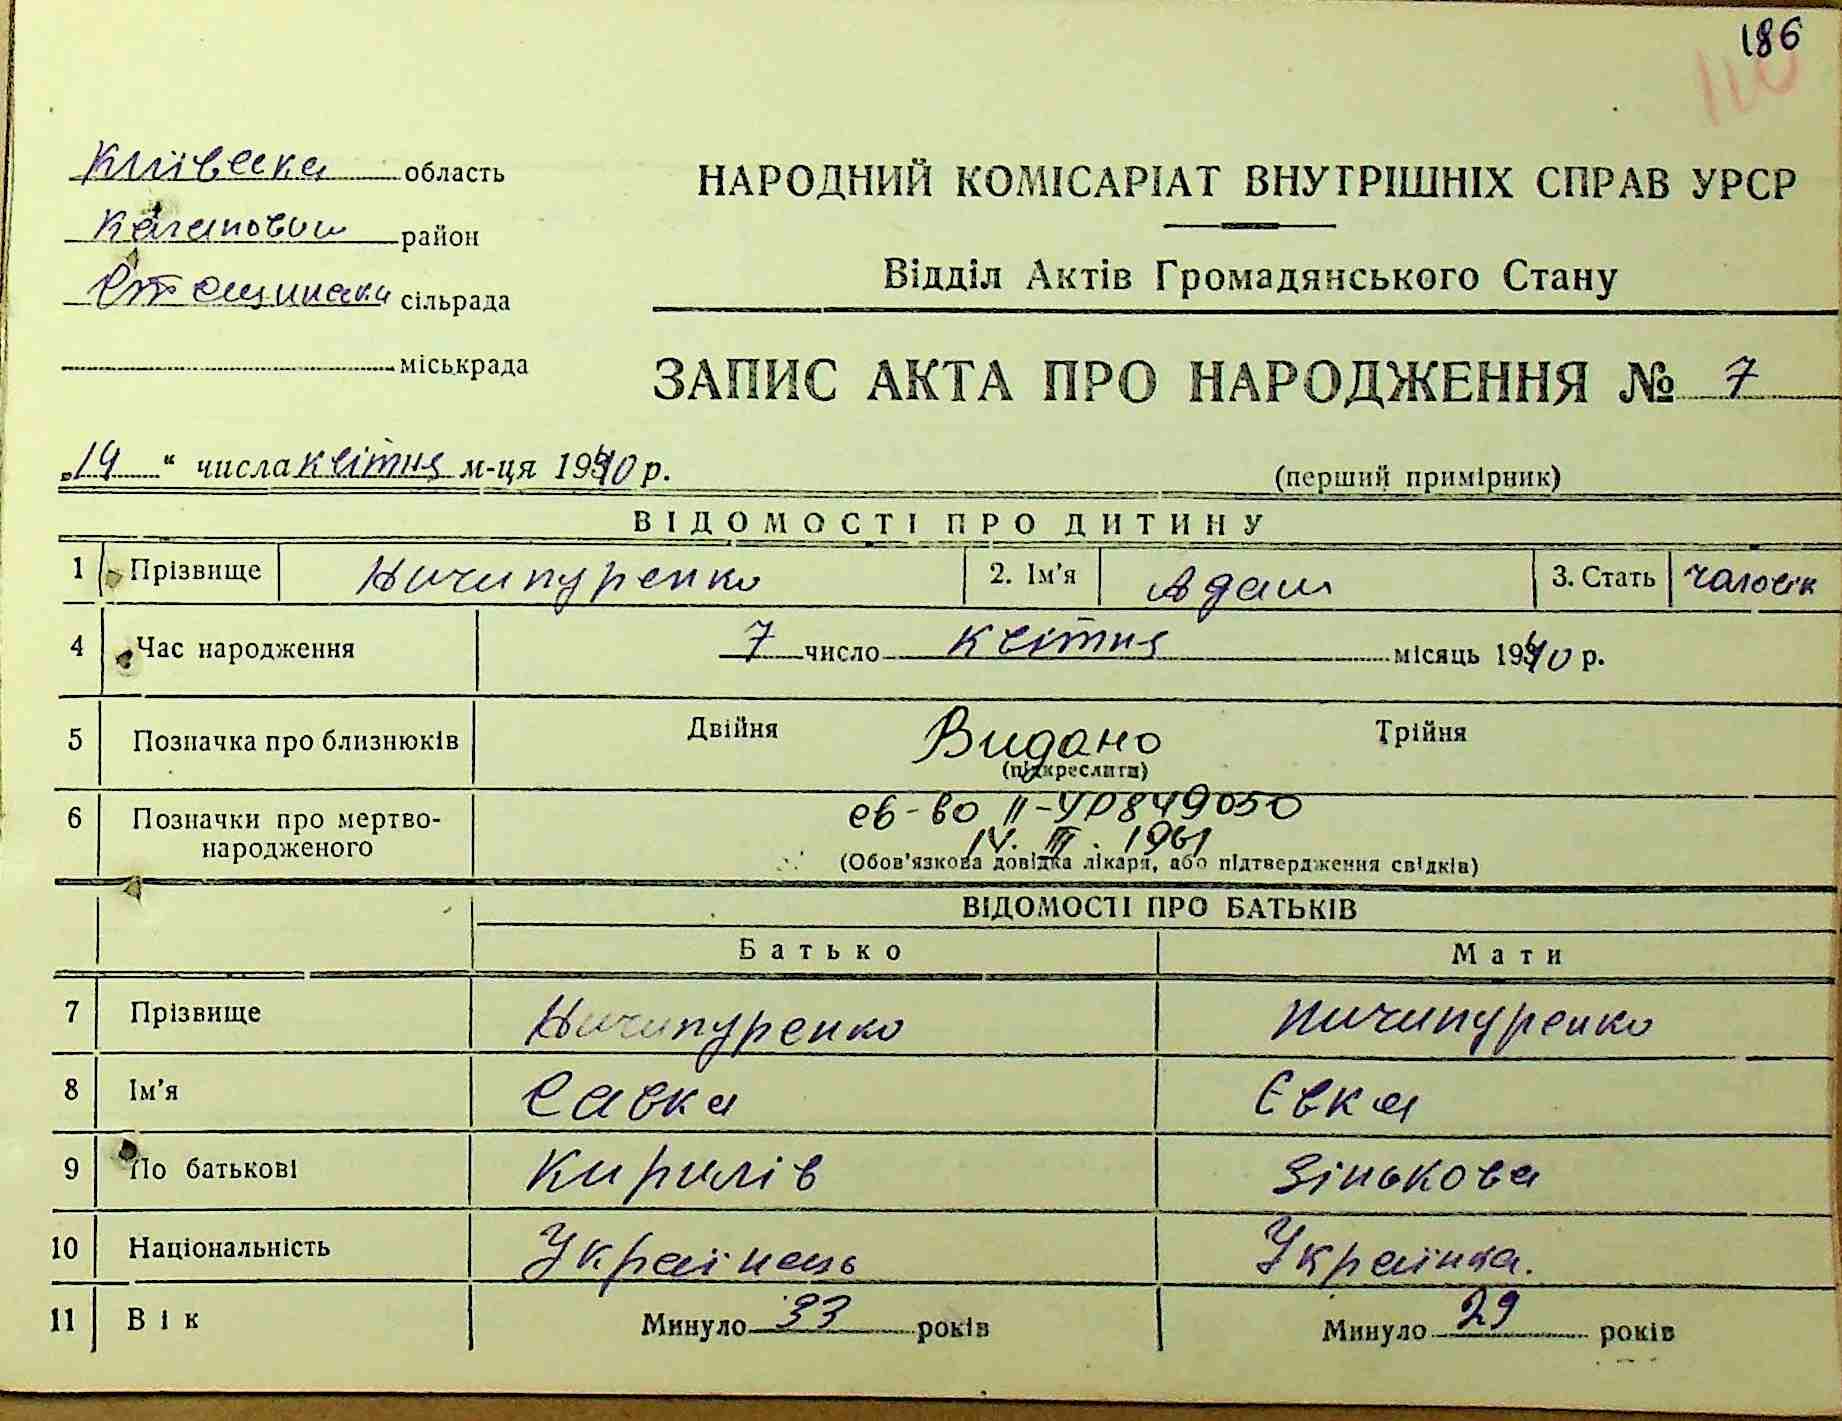 186
110
Київська область
Каганович район
Стещинська сільрада
міськрада
НАРОДНИЙ КОМІСАРІАТ ВНУТРІШНІХ СПРАВ УРСР
Відділ Актів Громадянського Стану
ЗАПИС АКТА ПРО НАРОДЖЕННЯ № 7
„14“ числа квітня м-ця 1940 р.
(перший примірник)
ВІДОМОСТІ ПРО ДИТИНУ
1 Прізвище Ничипуренко 2. Ім'я Адам 3. Стать чоловік
4 Час народження 7 число квітня місяць 1940 р.
5 Позначка про близнюків Двійня Видано Трійня
(підкреслити)
6 Позначки про мертвонародженого
св-во II-УР 849050
14. III. 1961
(Обов'язкова довідка лікаря, або підтвердження свідків)
ВІДОМОСТІ ПРО БАТЬКІВ
Батько Мати
7 Прізвище Ничипуренко Ничипуренко
8 Ім'я Савка Євка
9 По батькові Кирилів Зінькова
10 Національність Українець Українка.
11 Вік Минуло 33 років Минуло 29 років